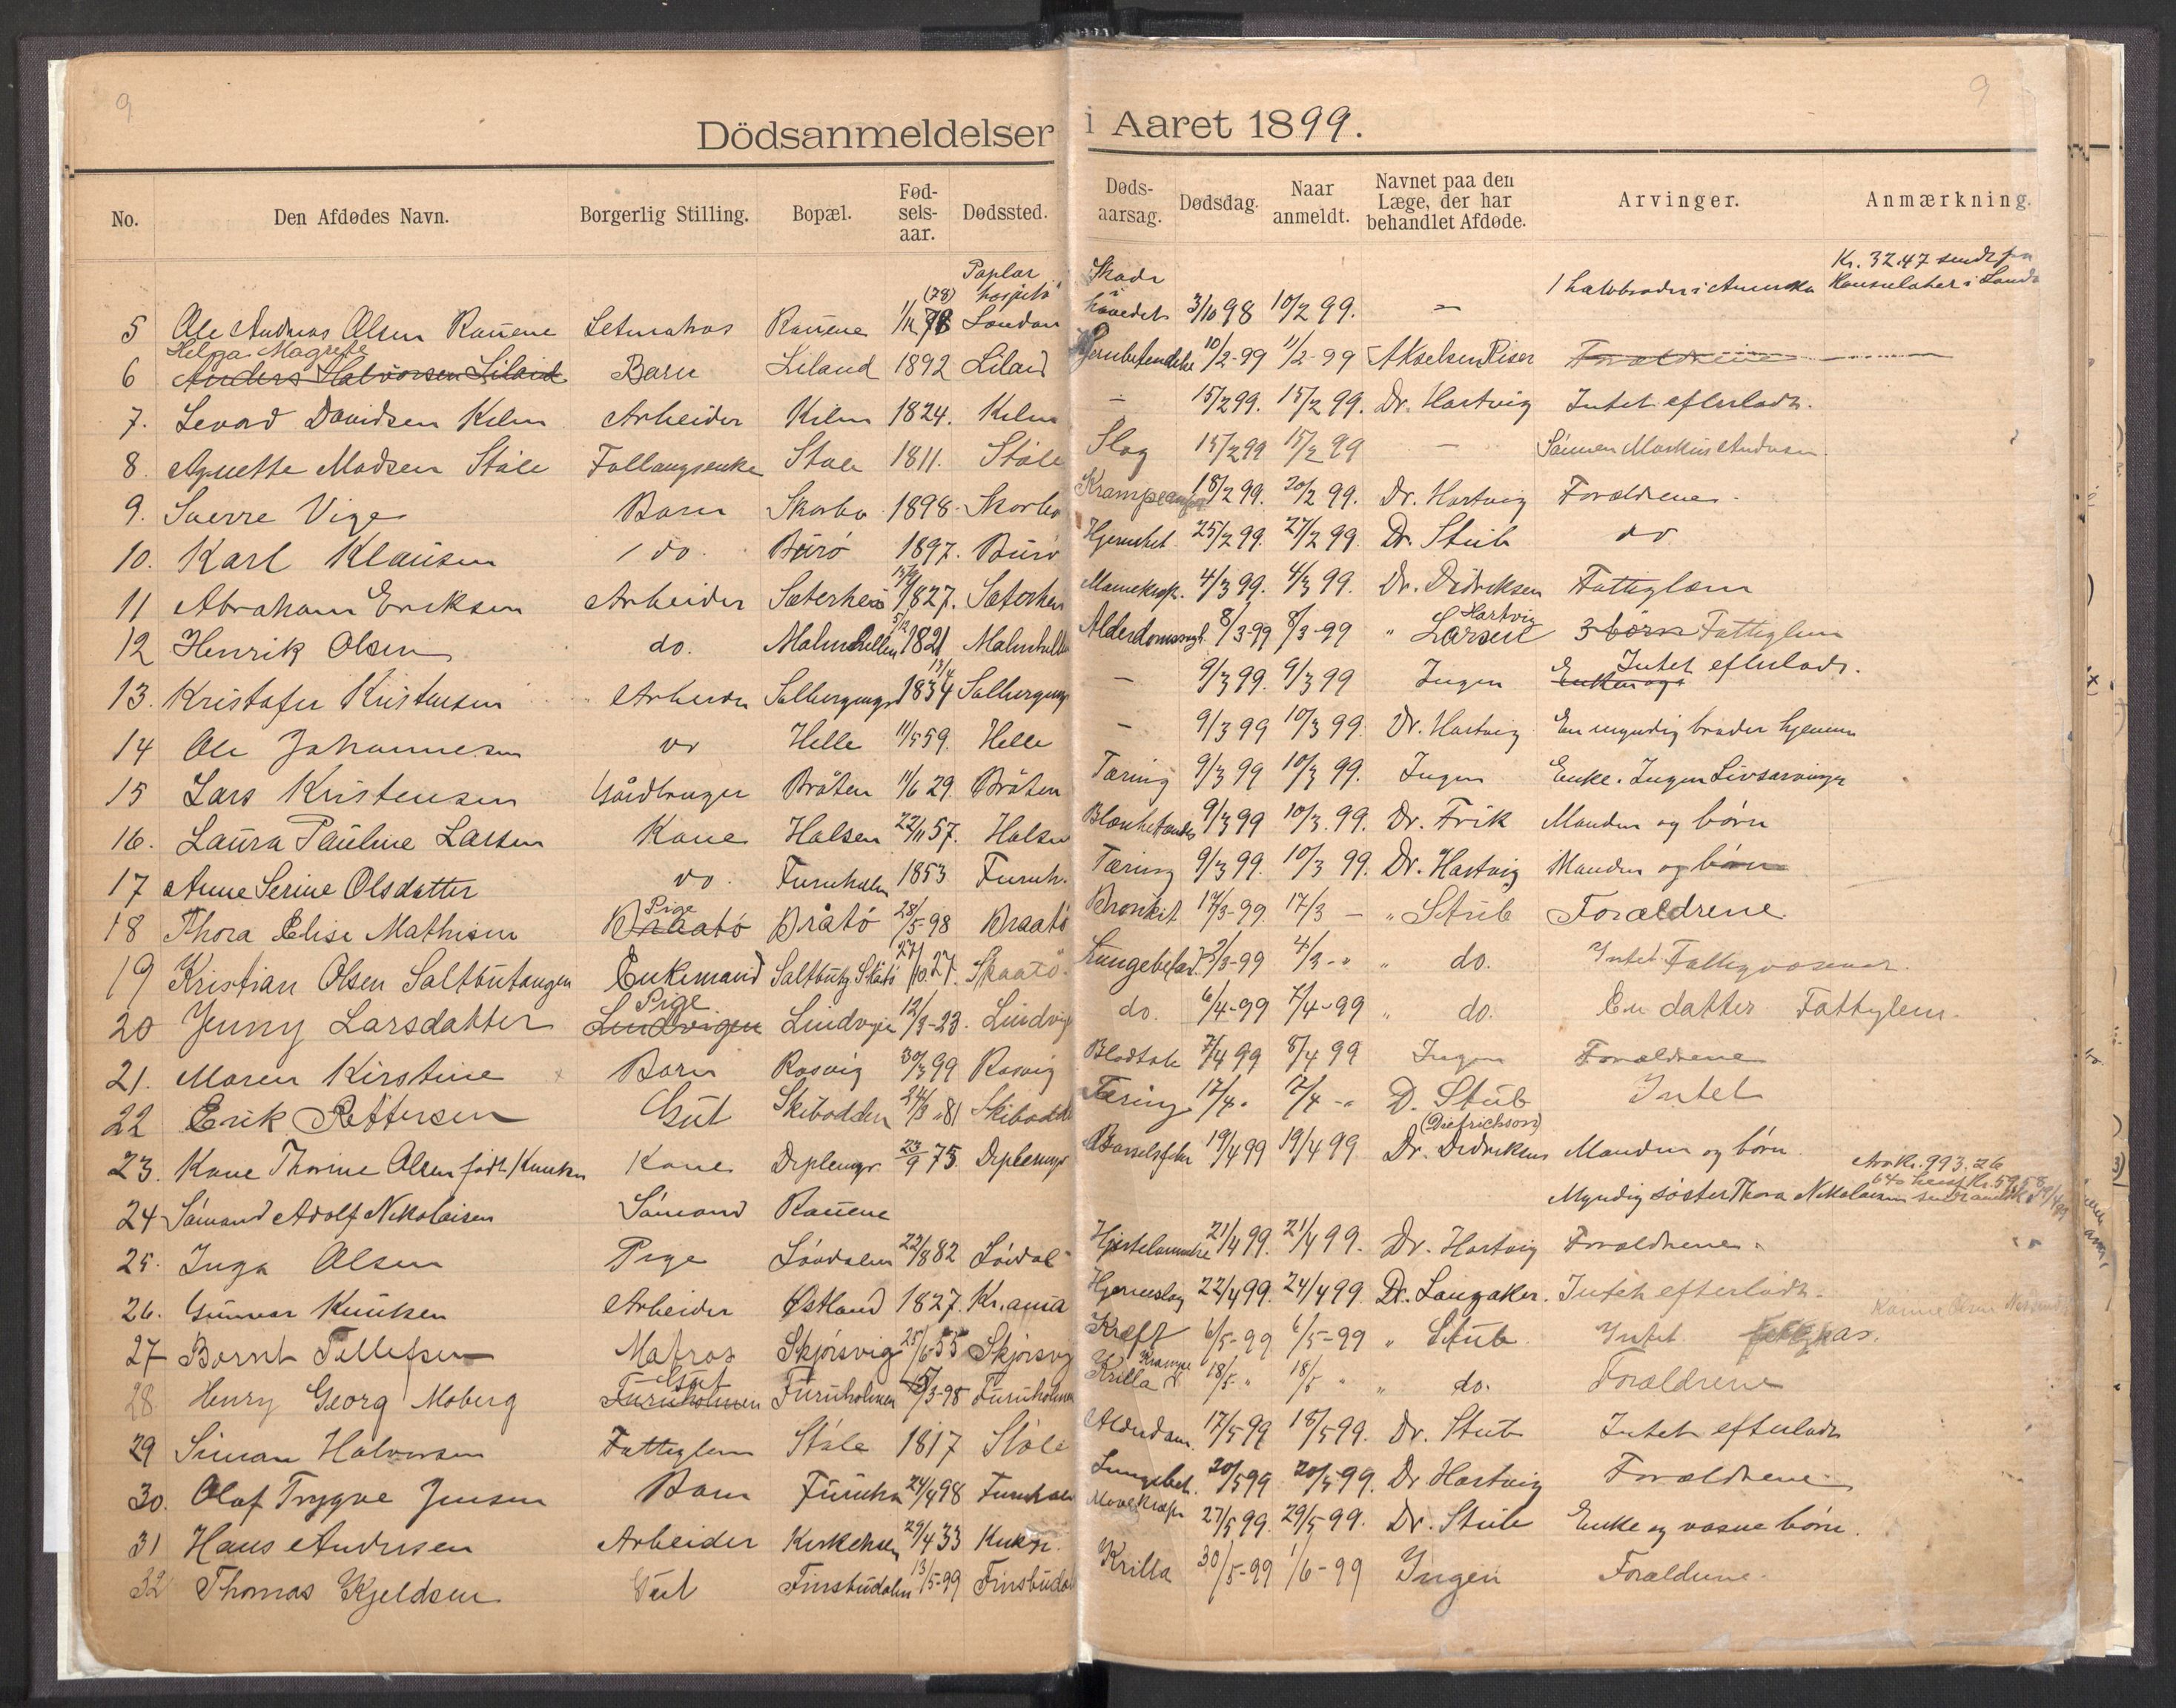 9
9
Dödsanmeldelser i Aaret 1899.
No. Den Afdødes Navn. Borgerlig Stilling. Bopæl. Fød-sels-aar. Dødssted. Døds-aarsag. Dødsdag. Naar anmeldt. Navnet paa den Læge, der har behandlet Afdøde. Arvinger. Anmærkning.
Poplar Skade Kr. 32.47 sendt fra
(78) hospital i 1 halvbroder i Amerika Konsulatet i Lond
5 Ole Andreas Olsen Rauene Letmatros Rauene 1/11 78 London hovedet 3/10 98 10/2 99. —
Helga Magrete
6 Anders Halvorsen Liland Barn Liland 1892 Liland Hjernebetendelse 10/2-99 11/2-99 Akselsen Riser Forældrene
7. Levord Davidsen Kilen Arbeider Kilen 1824. Kilen — 15/2 99. 15/2 99. Dr. Hartvig Intet efterladt.
8. Agnette Madsen Stöle Fattigenke Stöle 1811. Stöle Slag 15/2 99 15/2 99 — Sönnen Markus Andersen.
9. Sverre Vige Barn Skarbo 1898. Skarbo Krampe 18/2 99. 20/2 99. Dr. Hartvig Forældrene.
10. Karl Klausen do. Burö 1897. Burö Hjernebet. 25/2 99. 27/2 99. Dr. Stub do
11 Abraham Eriksen Arbeider Sæterhei 1827. Sæterhei Mavekræft. 4/3 99. 4/3 99. Dr. Didriksen Fattiglem
5/2 Hartvig
12 Henrik Olsen do. Malmhellen 1821 Malmhellen Alderdomssvagh. 8/3-99 8/3-99 " Larsen 3 börn Fattiglem
Intet efterladt.
13. Kristofer Kristensen Arbeider 1834 — 9/3 99. 9/3 99 Ingen Enken og
14 Ole Johannesen do Helle 11/5 59. Helle — 9/3 99 10/3 99. Dr. Hartvig En myndig broder hjemme
15 Lars Kristensen Gårdbruger Bråten 11/6 29. Bråten Tæring 9/3 99 10/3 99. Ingen Enke. Ingen Livsarvinger
16. Laura Pauline Larsen Kone Halsen 22/11 57. Halsen 9/3 99 10/3. 99. Dr. Frik Manden og børn
17 Anne Serine Olsdatter do. Furuholm 1853 Furuh. Tæring 9/3 99. 10/3 99. Dr. Hartvig Manden og børn
Pige
18 Thora Elise Mathisen Braatö Bråtö 28/5-98 Braatö Bronkit 17/3-99. 17/3 — " Stub Forældrene.
19 Kristian Olsen Saltbutangen Enkemand Saltbutg Skåtö 27/10. 27. Skaatö. Lungebet. 2/3-99 4/3-" " do. Intet Fattigvæsenet.
Pige
20 Jenny Larsdatter Lindvigen Lindvigen 12/3-23. Lindvig do. 6/4-99 7/4-99 " do. En datter Fattiglem.
21. Maren Kirstine Barn Rosvig 30/3 99 Rosvig Blodtab 7/4 99 8/4 99 Ingen Forældrene
22 Erik Pettersen Gut Skibodden 24/3 "81 Skibodden Tæring 17/4 " 17/4 -" D. Stub Intet
(Diedrichson)
23. Kone Thorine Olsen født Knuken Kone 23/9 75. Barselsfeber 19/4 99 19/4 99 Dr. Didriksen Manden og børn.
Arv Kr. 993.26
24 Sömand Adolf Nikolaisen Sömand Rauene Myndig söster Thora Nikolaisen
25. Inga Olsen Pige Lövdalen 22/8 82 Lövdal Hjertelammelse 21/4 99. 21/4 99. Dr. Hartvig Forældrene.
26. Gunvor Knutsen Arbeider Østland 1827. Kr.ania Hjerneslag 22/4 99. 24/4 99. Dr. Langaker. Intet efterladt.
27 Bernt Tellefsen Matros Skjörsvig 25/6 55 Skjörsvig Kræft 6/5-99 6/5-99 " Stub. Intet.
Gut Krampe
28 Henry Georg Moberg Furuholmen Furuholmen 15/3-98 Furuholmen Krilla 18/5 " 18/5 " " do. Forældrene
29 Simon Halvorsen Fattiglem Stöle 1817 Stöle Alderdom. 17/5 99 18/5 99. Dr. Stub Intet efterladt
30. Olaf Trygve Jensen Barn Furuho 24/4 98 Furuholm Lungebet. 20/5 99 20/5 99. Dr Hartvig Forældrene
31 Hans Andresen Arbeider 29/4 33 Mavekræft 27/5 99. 29/5 99. Dr. Stub Enke og voksne børn.
32 Thomas Kjeldsen Gut Finsbudalen 13/5-99 Finsbudal Krilla 30/5-99 1/6-99 Ingen Forældrene.